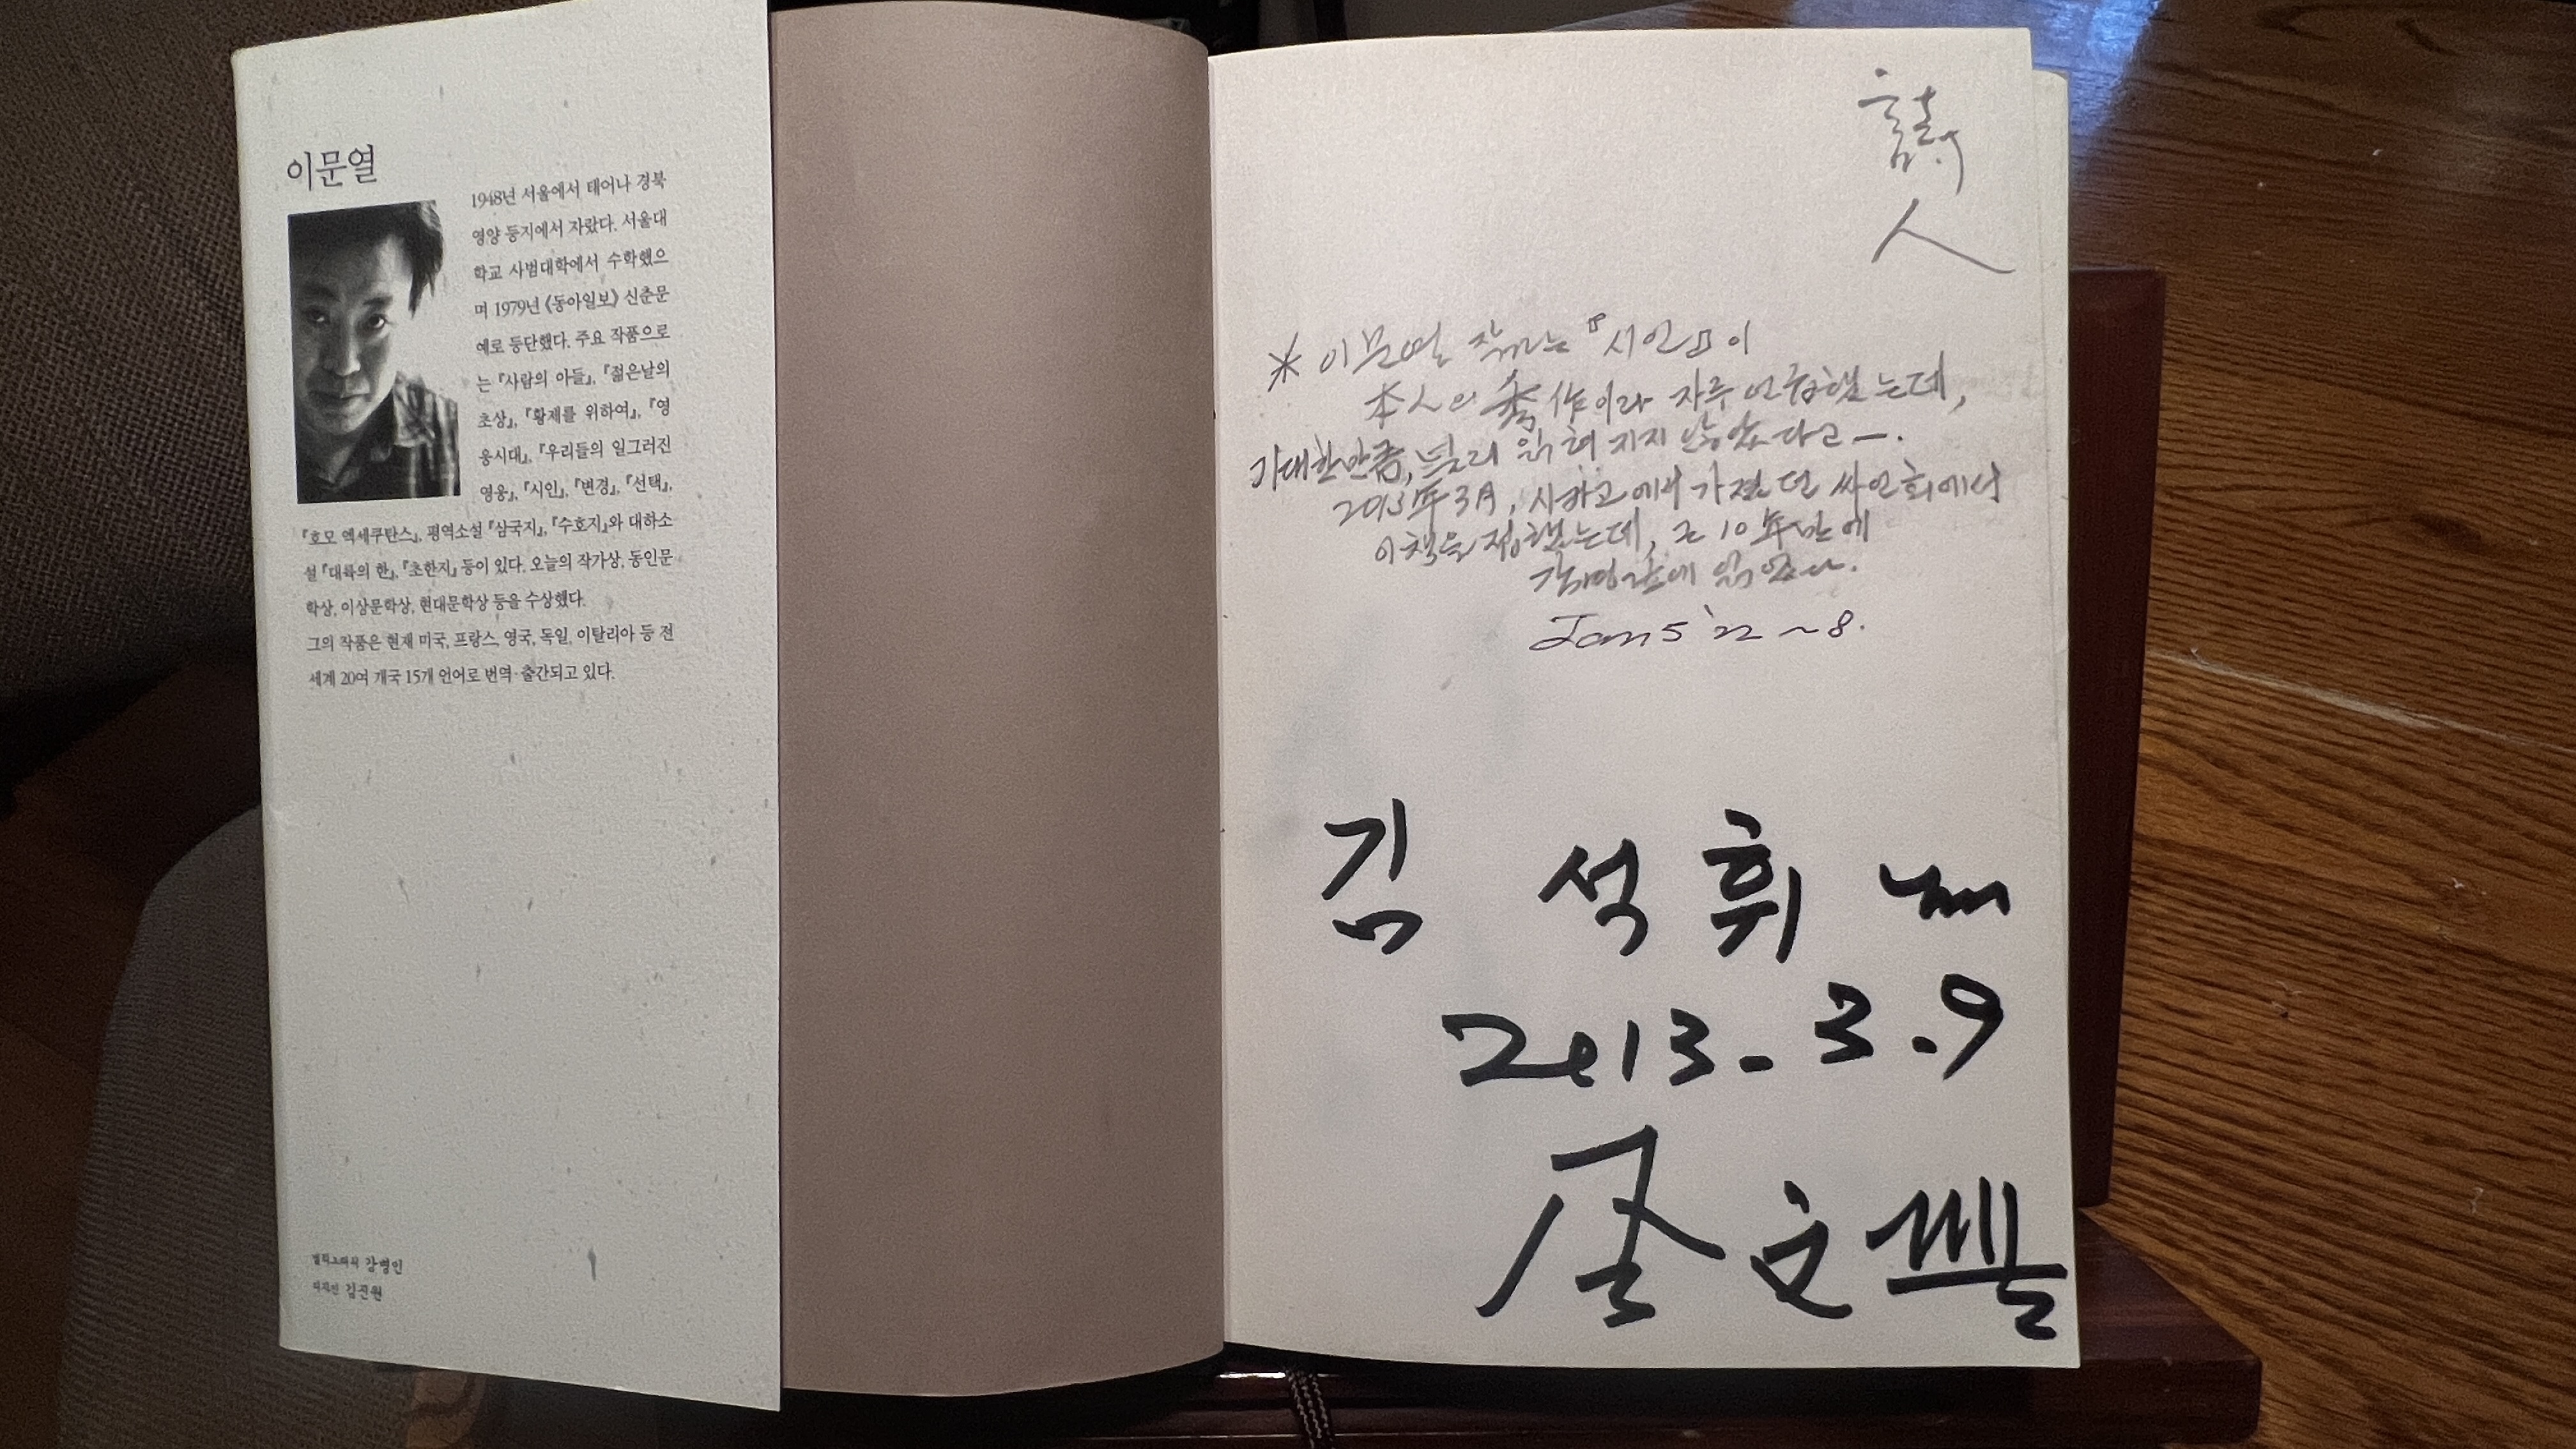 이문열
1948년 서울에서 태어나 경북
영양 등지에서 자랐다. 서울대
학교 사범대학에서 수학했으
며 1979년 《동아일보》 신춘문
예로 등단했다. 주요 작품으로
는 『사람의 아들』, 『젊은날의
초상』, 『황제를 위하여』, 『영
웅시대』, 『우리들의 일그러진
영웅』, 『시인』, 『변경』, 『선택』,
『호모 엑세쿠탄스』, 평역소설 『삼국지』, 『수호지』와 대하소
설 『대륙의 한』, 『초한지』 등이 있다. 오늘의 작가상, 동인문
학상, 이상문학상, 현대문학상 등을 수상했다.
그의 작품은 현재 미국, 프랑스, 영국, 독일, 이탈리아 등 전
세계 20여 개국 15개 언어로 번역·출간되고 있다.
캘리그래퍼 강병인
디자인 김진원
詩
人
※ 이문열 작가는 『시인』이
本人의 秀作이라 자주 언급했는데,
기대한만큼, 널리 읽혀지지 않았다고—.
2013年 3月, 시카고에서 가졌던 싸인회에서
이 책을 접했는데, 근 10年만에
읽었다.
Jan 5 '22 ~ 8.
김 석휘
2013. 3. 9